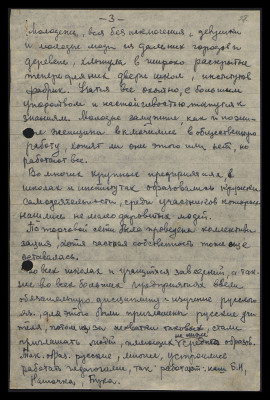 - 3 -
Молодежь, вся без исключения, девушки
и молодые люди из далеких городов и
деревень, хлынула в широко раскрытые
теперь для них двери школ, институтов
фабрик. Учатся все охотно, с большим
упорством и настойчивостью тянутся к
знаниям. Молодые замужние, как и пожи-
лые женщины включились в общественную
работу, хотят ли они этого или нет, но
работают все.
Во многих крупных предприятиях, в
школах и институтах образовались кружки
самодеятельности, среди участников которых
нашлись не мало даровитых людей.
По торговой сети была проведена коллективи-
зация, хотя частная собственность тоже еще
оставалась.
Во всех школах и учащихся заведений, а так-
же во всех больших предприятиях ввели
обязательную дисциплину - изучение русского
яз., для этого были приглашены русские учи-
теля, потом из-за нехватки таковых, стали
приглашать людей, имеющих средн. образов.
Так, образ. русские, многие, устроились
работать педагогами, так работают наши